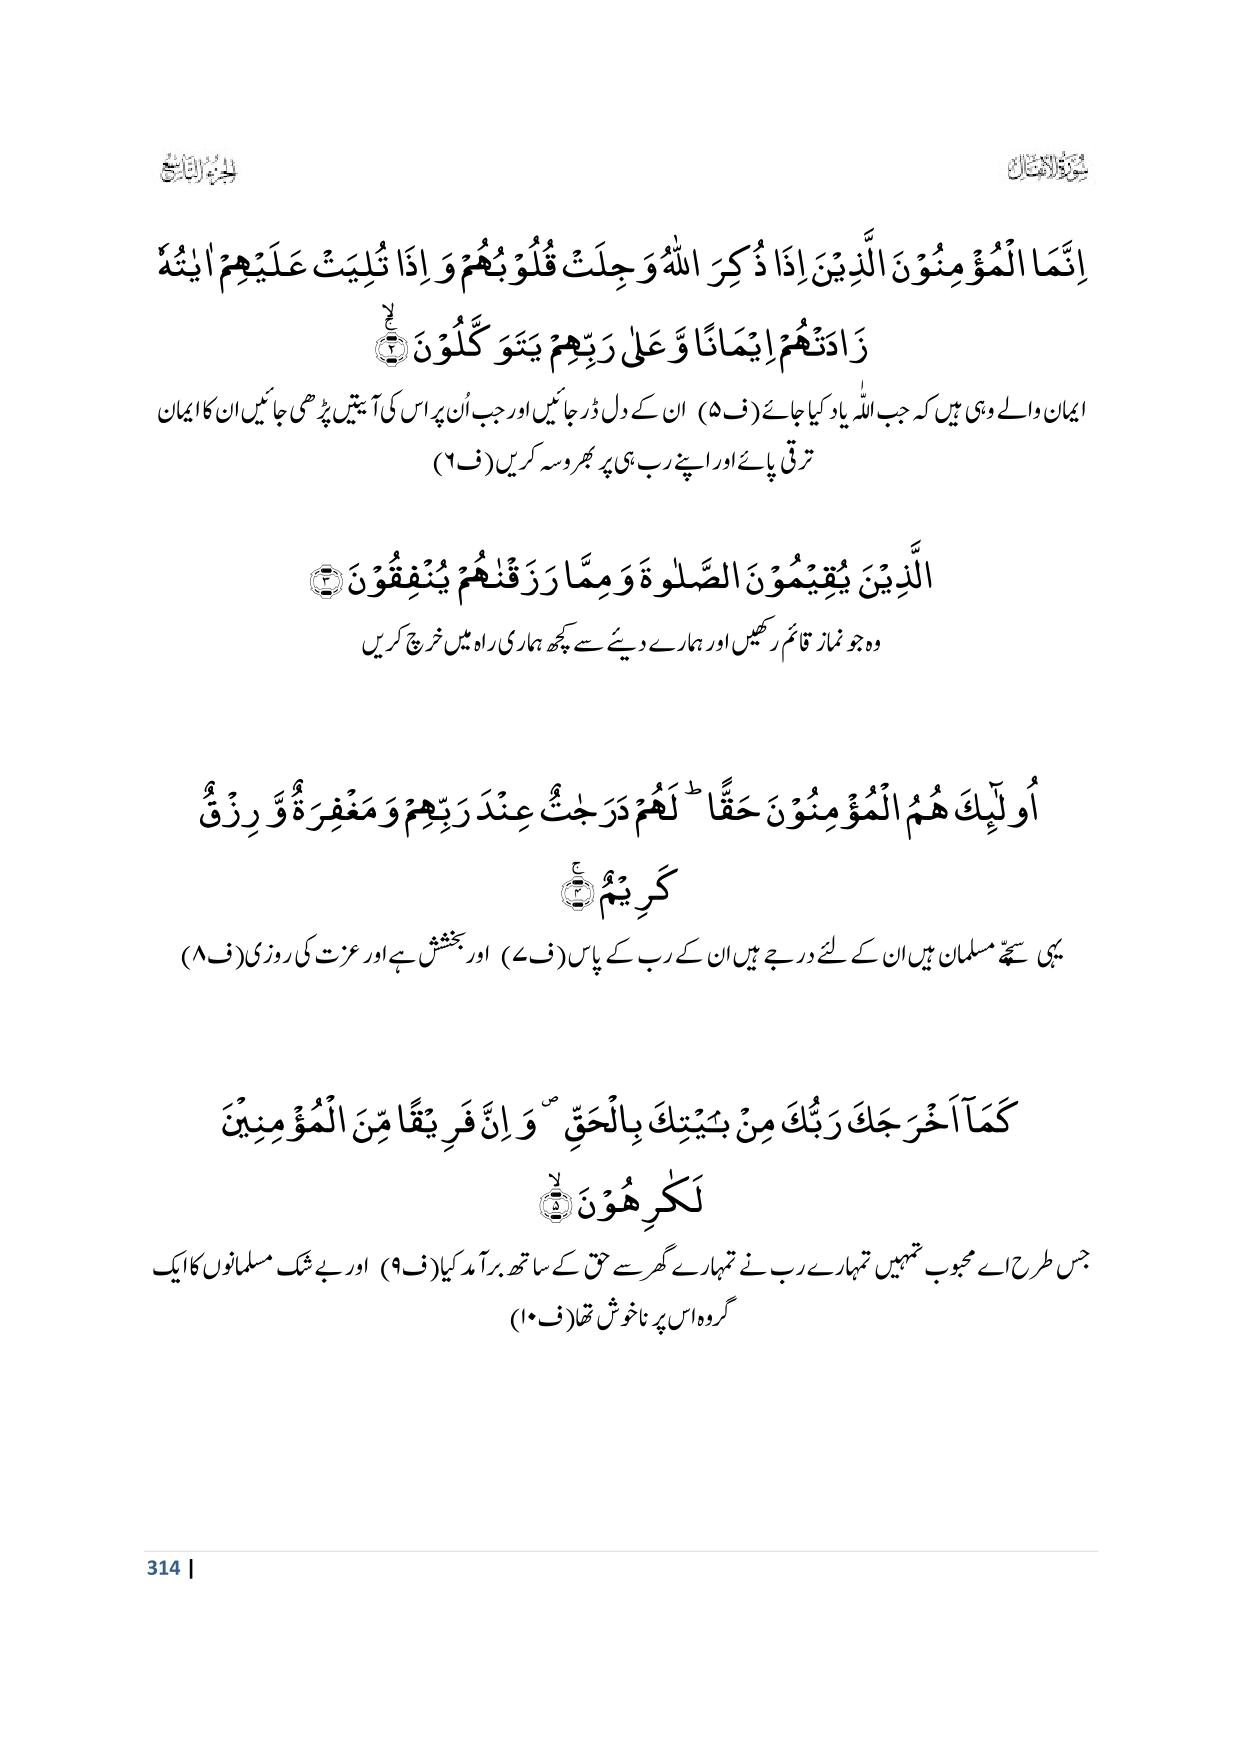 سُوْرَۃُ الْاَنْفَال
الجزء التاسع
اِنَّمَا الْمُؤْمِنُوْنَ الَّذِیْنَ اِذَا ذُكِرَ اللّٰهُ وَجِلَتْ قُلُوْبُهُمْ وَ اِذَا تُلِیَتْ عَلَیْهِمْ اٰیٰتُهٗ
زَادَتْهُمْ اِیْمَانًا وَّ عَلٰى رَبِّهِمْ یَتَوَكَّلُوْنَۚۖ(۲)
ایمان والے وہی ہیں کہ جب اللّٰہ یاد کیا جائے(ف۵) ان کے دل ڈر جائیں اور جب اُن پر اس کی آیتیں پڑھی جائیں ان کا ایمان
ترقی پائے اور اپنے رب ہی پر بھروسہ کریں(ف۶)
الَّذِیْنَ یُقِیْمُوْنَ الصَّلٰوةَ وَ مِمَّا رَزَقْنٰهُمْ یُنْفِقُوْنَ(۳)
وہ جو نماز قائم رکھیں اور ہمارے دیئے سے کچھ ہماری راہ میں خرچ کریں
اُولٰٓىٕكَ هُمُ الْمُؤْمِنُوْنَ حَقًّاؕ لَهُمْ دَرَجٰتٌ عِنْدَ رَبِّهِمْ وَ مَغْفِرَةٌ وَّ رِزْقٌ
كَرِیْمٌۚ(۴)
یہی سچّے مسلمان ہیں ان کے لئے درجے ہیں ان کے رب کے پاس(ف۷) اور بخشش ہے اور عزت کی روزی(ف۸)
كَمَاۤ اَخْرَجَكَ رَبُّكَ مِنْۢ بَیْتِكَ بِالْحَقِّ۪ وَ اِنَّ فَرِیْقًا مِّنَ الْمُؤْمِنِیْنَ
لَكٰرِهُوْنَۙ(۵)
جس طرح اے محبوب تمہیں تمہارے رب نے تمہارے گھر سے حق کے ساتھ برآمد کیا(ف۹) اور بے شک مسلمانوں کا ایک
گروہ اس پر ناخوش تھا(ف۱۰)
314 |